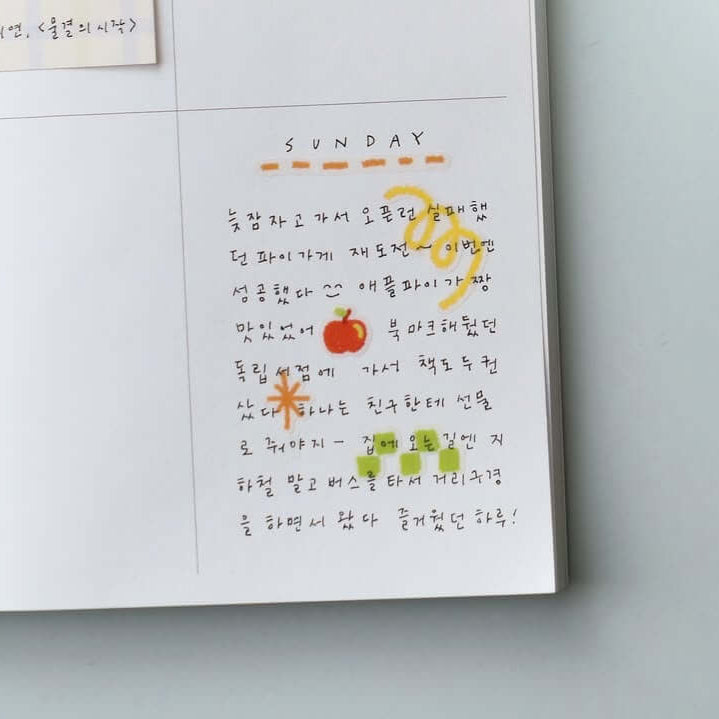 연, <물결의 시작>
SUNDAY
늦잠자고 가서 오픈런 실패했
던 파이가게 재도전~ 이번엔
성공했다 애플파이가 짱
맛있었어 북마크해뒀던
독립서점에 가서 책도 두권
샀다 하나는 친구한테 선물
로 줘야지 - 집에 오는길엔 지
하철 말고 버스를 타서 거리구경
을 하면서 왔다 즐거웠던 하루!